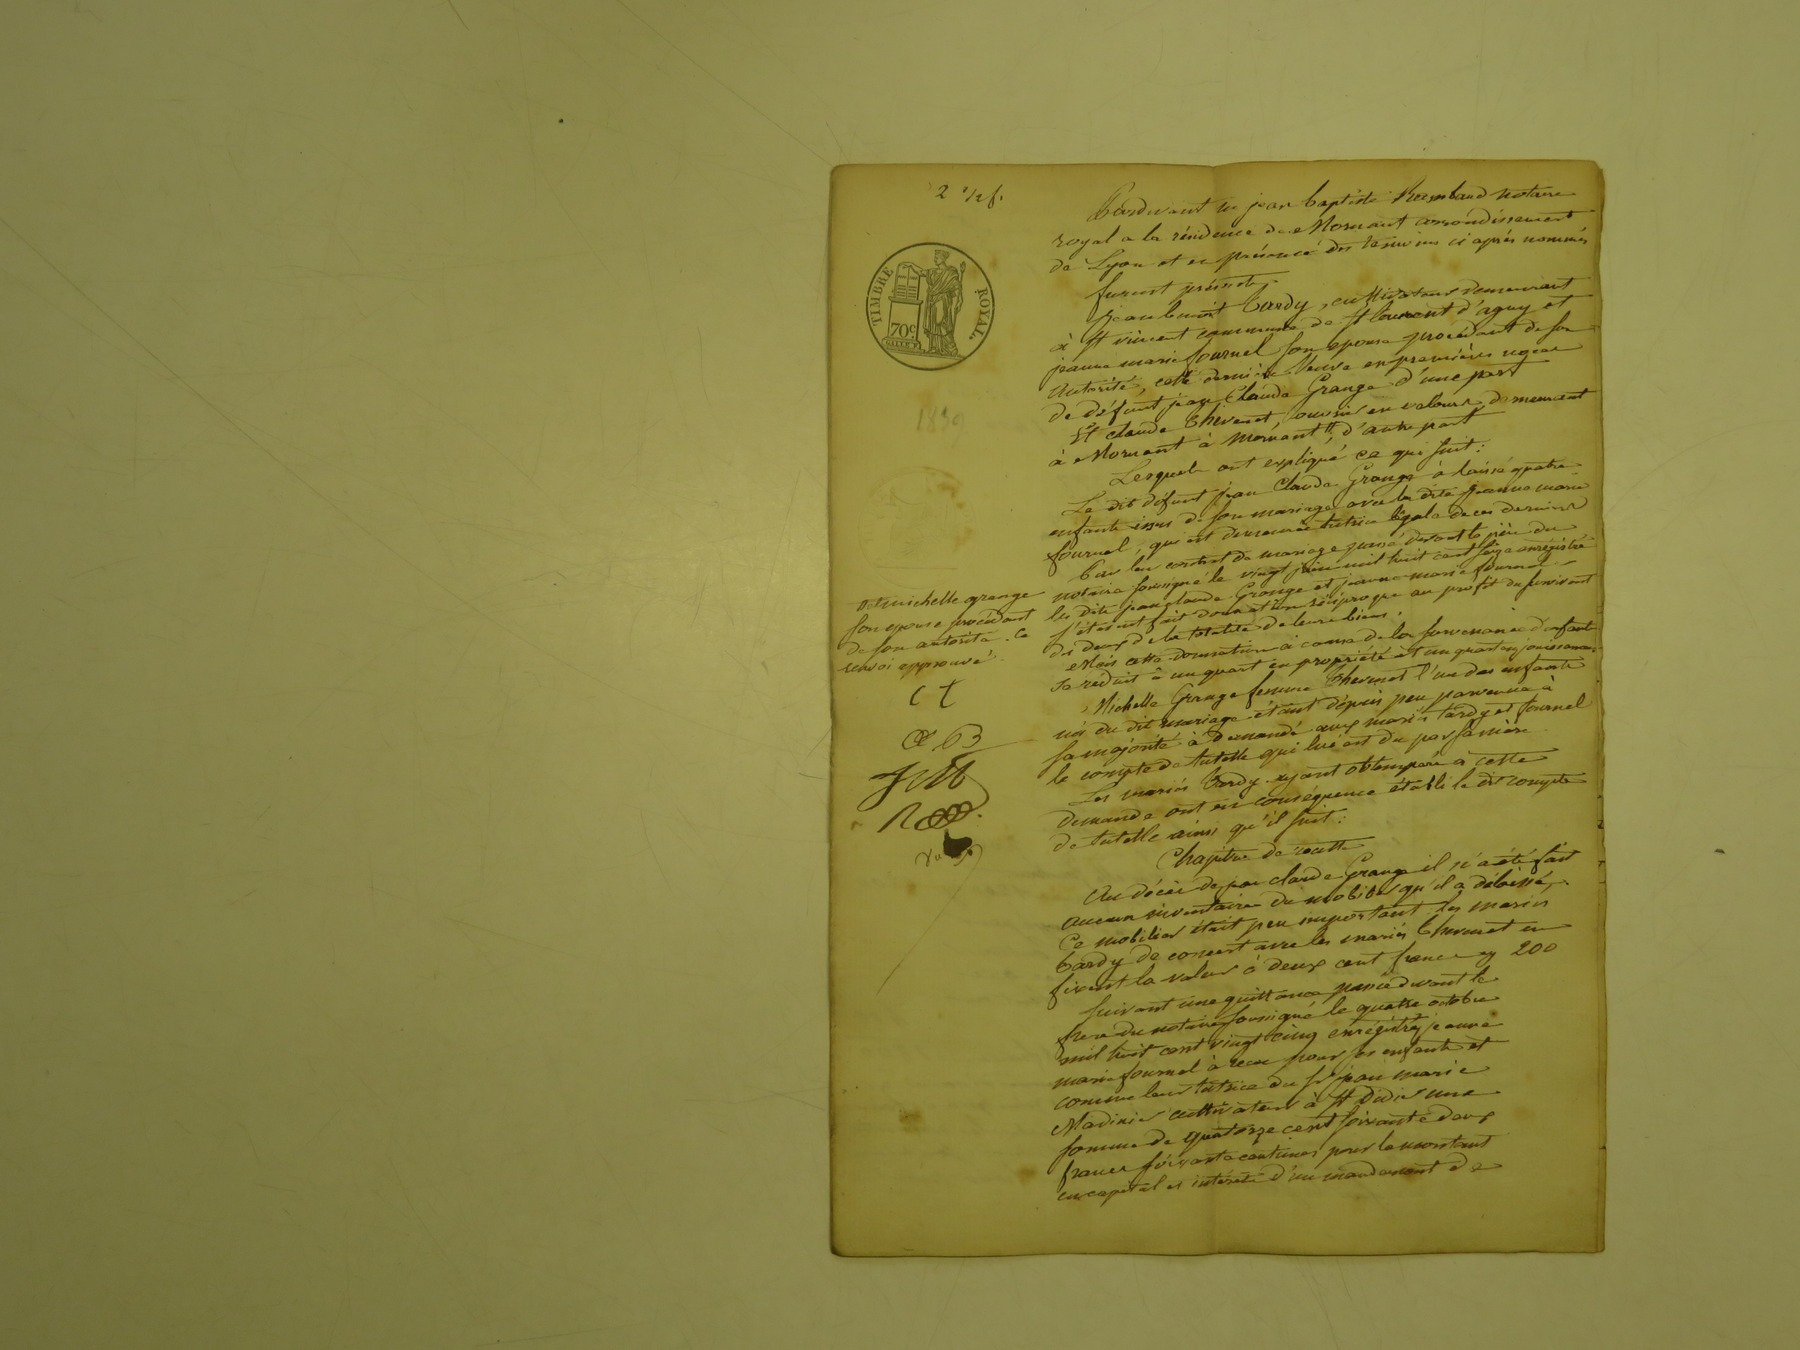 2 1/2 f.
TIMBRE ROYAL.
70c
1839
Pardevant me jean baptiste notaire
royal a la résidence de Mornant arrondissement
de Lyon et en présence des temoins ci après nommés
furent présents
jean benoit Tardy, cultivateur demeurant
à St vincent commune de St laurent d'agny et
jeanne marie fournel son epouse procédant de son
autorité, cette dernière veuve en premières noces
de défunt jean Claude Grange d'une part
Et claude Thevenet, ouvrier en velours demeurant
à Mornant à Mornant # d'autre part
Lesquels ont expliqué ce qui suit :
Le dit défunt jean Claude Grange à laissé quatre
enfants issus de son mariage avec la dite jeanne marie
fournel, qui est demeurée tutrice légale de ces derniers
Par leur contrat de mariage passé devant le père du
notaire soussigné le vingt juin mil huit cent seize enrégistré
les dits jean claude Grange et jeanne marie fournel
s'étaient fait donation réciproque au profit du survivant
des deux de la totalité de leurs biens.
Mais cette donation à cause de la survenance d'enfants
se réduit à un quart en propriété et un quart en jouissance.
Michelle Grange femme Thevenet l'un des enfants
nés du dit mariage étant dépuis peu parvenue à
sa majorité à demandé aux mariés tardy et fournel
le compte de tutelle qui lui est du par sa mère.
Les mariés Tardy ayant obtempéré a cette
demande ont en conséquence établi le dit compte
de tutelle ainsi qu'il suit :
Chapitre de recette
Au décès de jean claude Grange il n'a été fait
aucun inventaire du mobilier qu'il a délaissé,
Ce mobilier était peu important les mariés
Tardy de concert avec les mariés Thevenet en
fixent la valeur à deux cent francs cy 200
Suivant une quittance passée devant le
père du notaire soussigné le quatre octobre
mil huit cent vingt cinq enrégistrée jeanne
marie fournel à recu pour ses enfants et
comme leur tutrice du sr jean marie
Madinier cultivateur à St Didier une
somme de quatorze cent soixante deux
francs soixante centimes pour le montant
en capital et intérêts d'un mandement de
# et michelle grange
son epouse procédant
de son autorité. Ce
renvoi approuvé.
C t